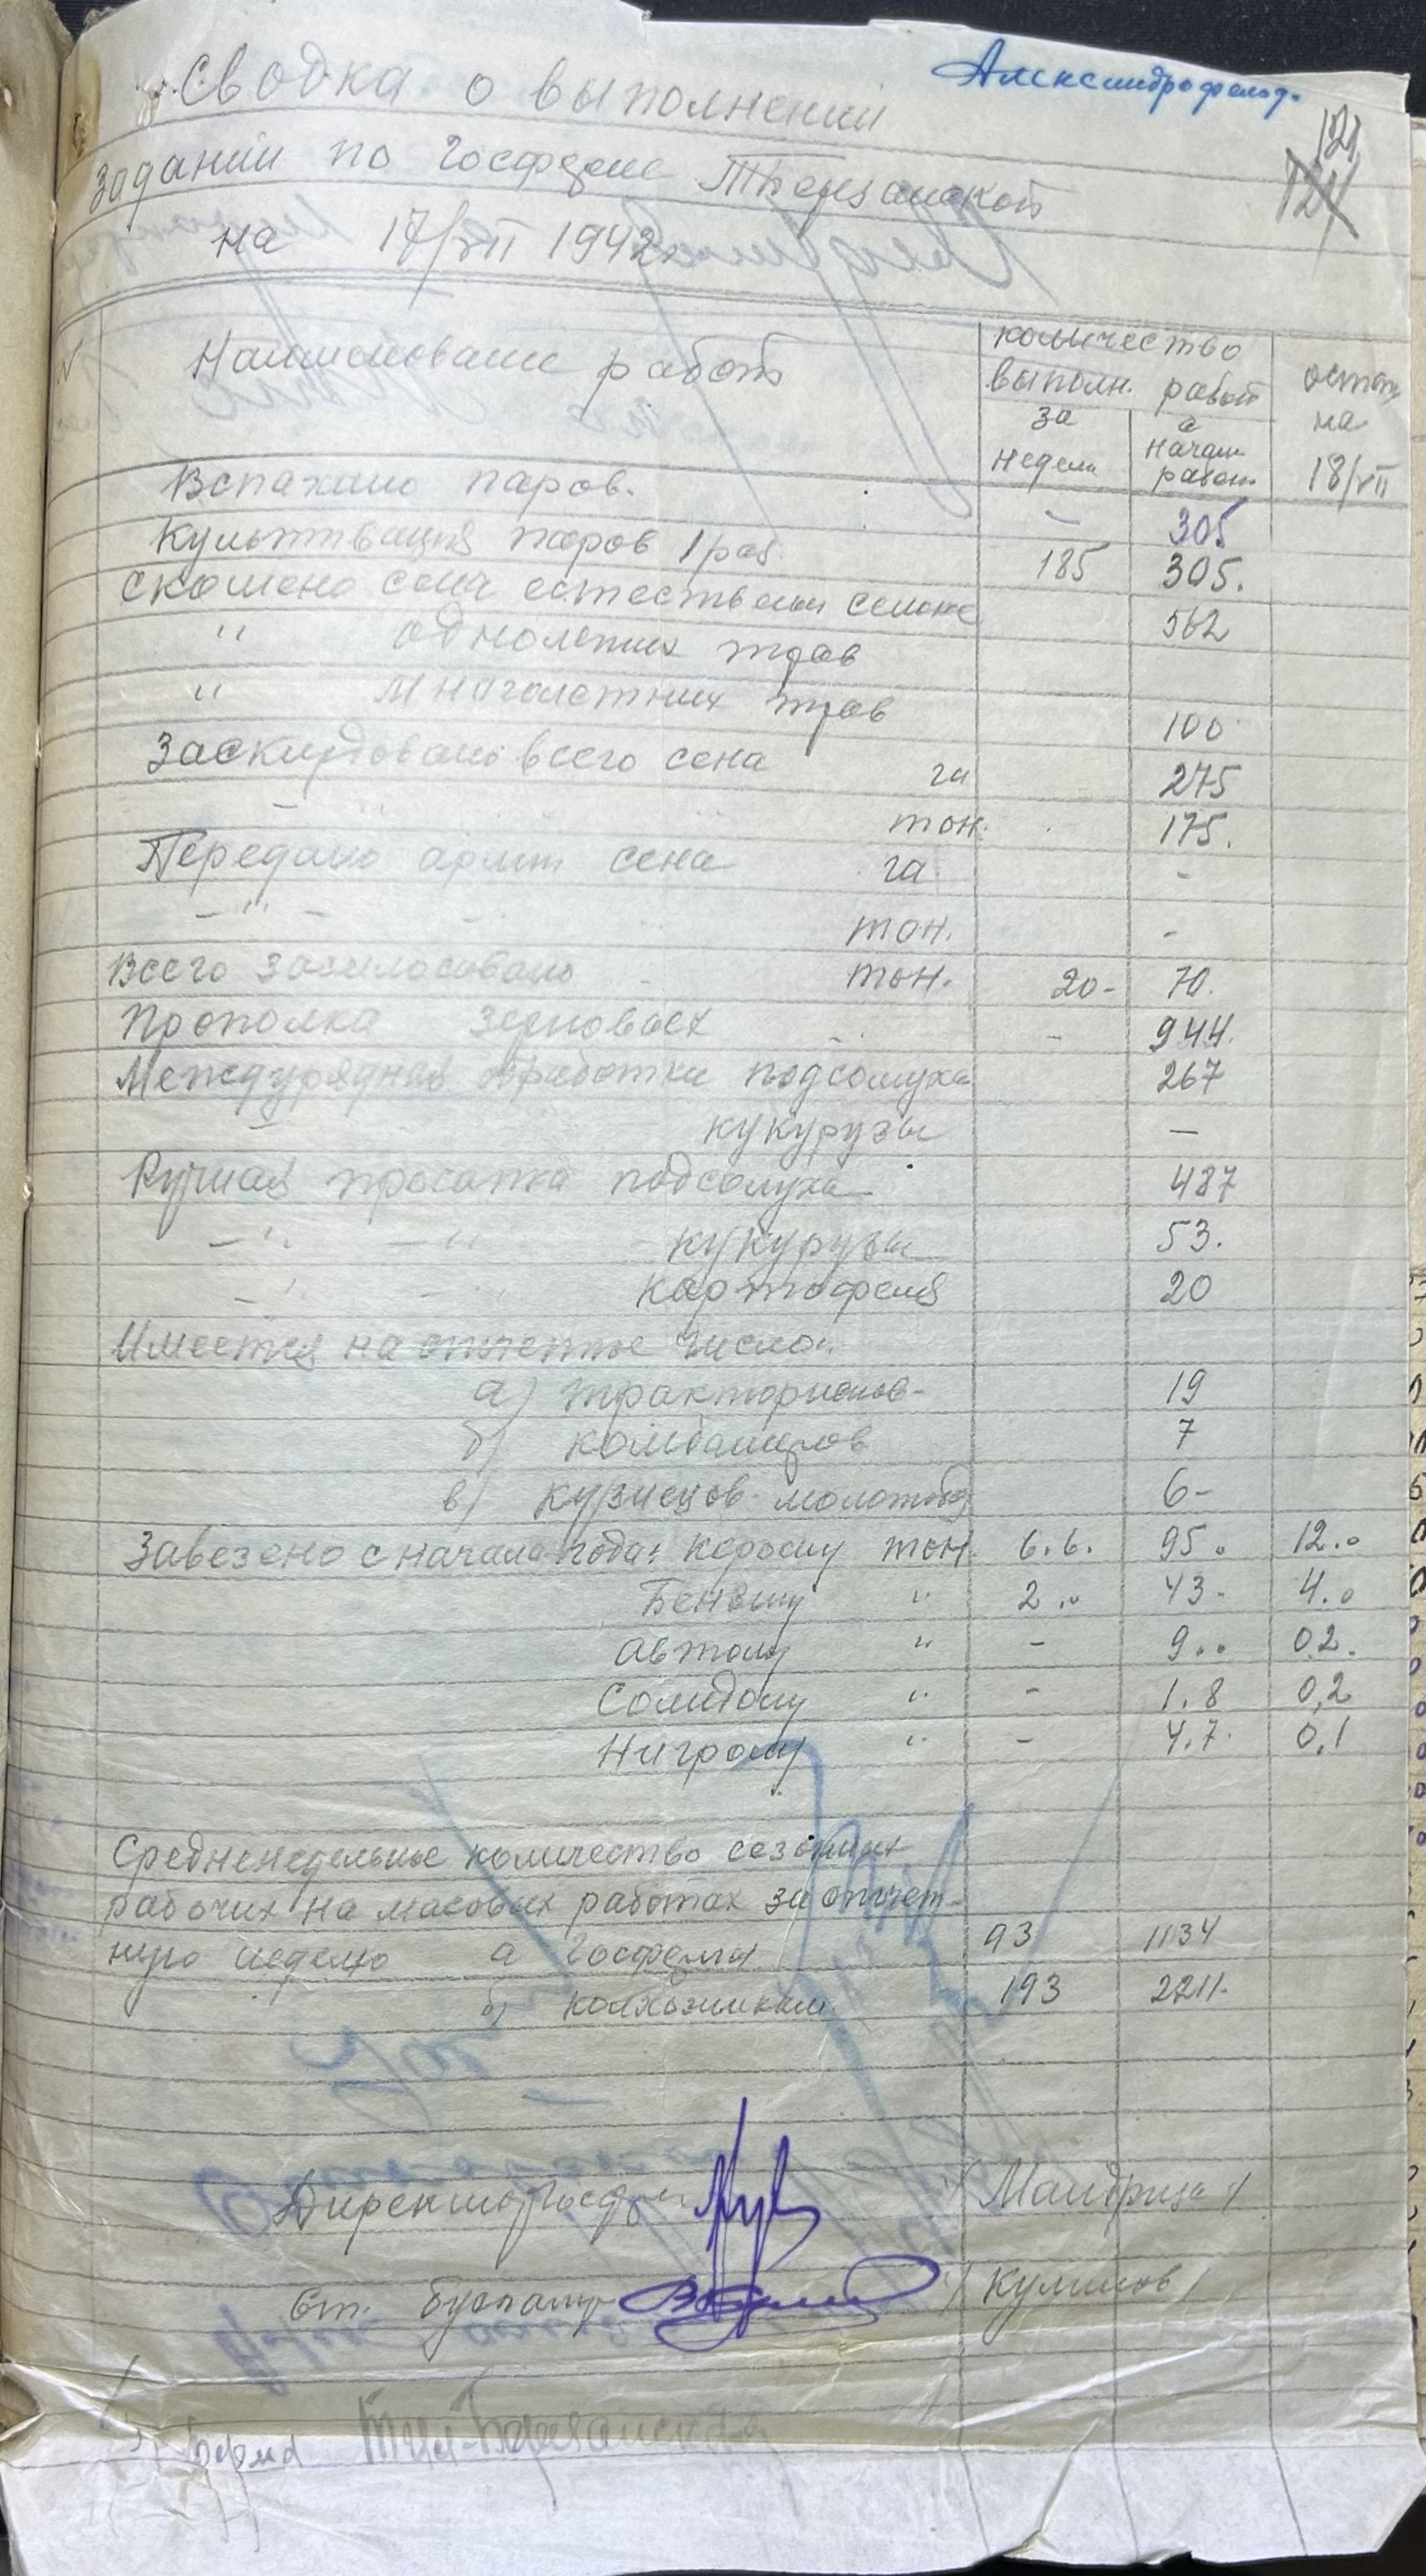 Александрофельд.
Сводка о выполнении
121
124
заданий по госферме Т. Березанской
на 17/VII 1942
N Наименование работ количество выполн. работ остат на 18/VII
за недели с начала работ
Вспахано паров. — 305
Культивация паров 1 раз 185 305.
Скошено сена естествен сенок 562
" однолетних трав
" многолетних трав 100
Заскирдовано всего сена га 275
тон. 175.
Передано арми сена га -
- " - тон. -
Всего засилосовано тон. 20- 70.
Прополка зерновых - 944.
Междурядная обработка подсолнуха 267
кукурузы —
Ручная просапка подсолнуха 487
- " - " кукурузы 53.
- " - картофеля 20
Имеется на отчетное число:
а) трактористов- 19
б) комбайнеров 7
в) кузнецов-молотоб 6-
Завезено с начала года: Керосину тон. 6.6. 95. 12.0
Бензину " 2.. 43- 4.0
Автолу " - 9.. 0.2.
Солидолу " - 1.8 0,2
Нигролу " - 4.7. 0,1
Средненедельное количество сезонних
рабочих на масовых работах за отчет-
ную неделю а Госфермы 93 1134
б) колхозникам 193 2211.
Директор Госфермы
Ст. Бухгалтер / Куликов /